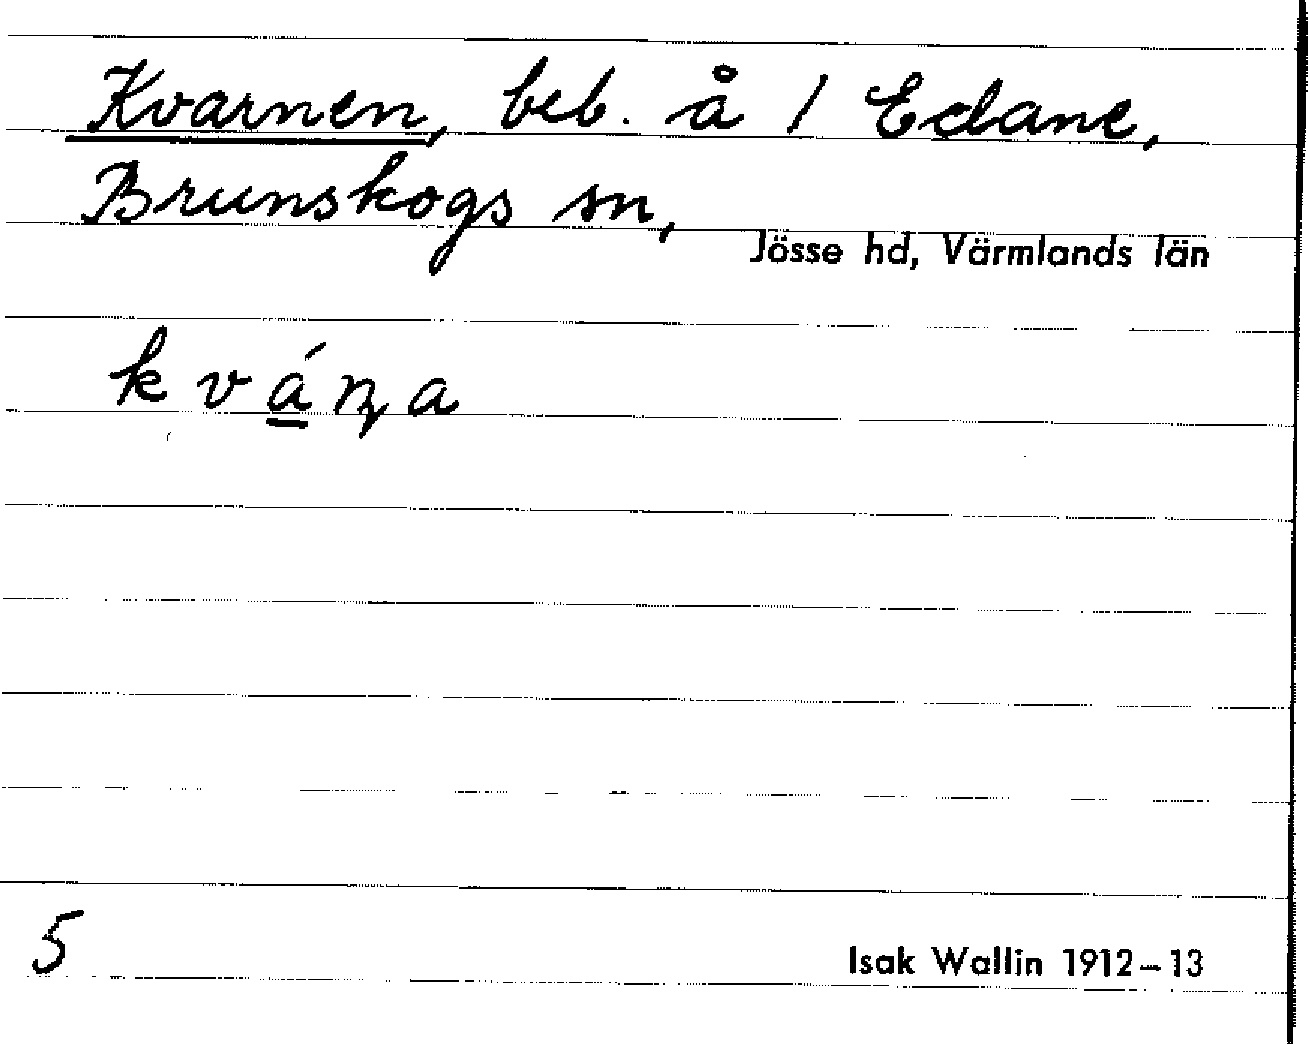 Kvarnen, beb. å 1 Edane,
Brunskogs sn,
Jösse hd, Värmlands län
kvá̱ɳa
5
Isak Wallin 1912–13